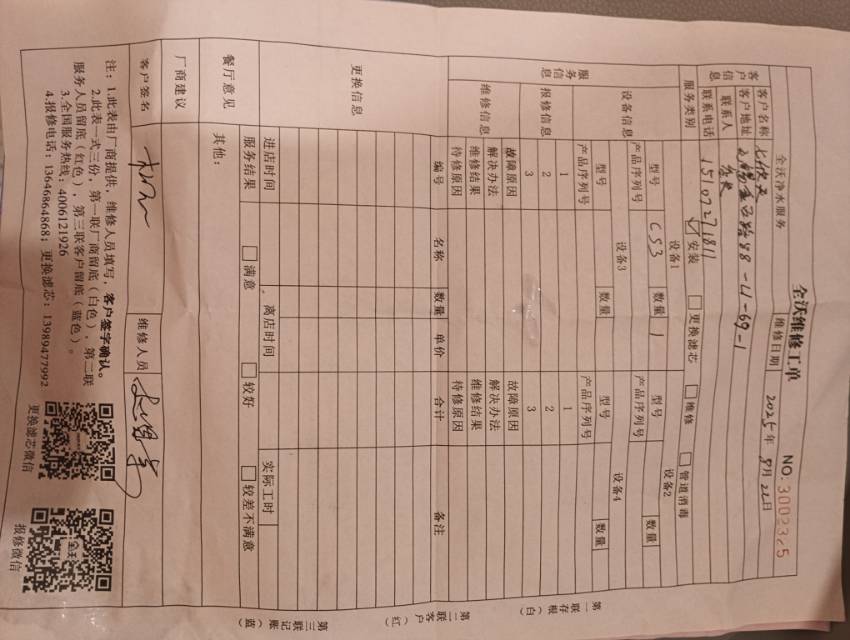 全沃维修工单
全沃净水服务
NO: 3002325
维修日期 2025年 8月 22日
客户信息
客户名称
客户地址 88-L1-69-1
联系人
联系电话 15107271811
服务类别 ☑安装 □更换滤芯 □维修 □管道消毒
服务信息
设备信息
设备1 设备2
型号 CS3 数量 1 型号 数量
产品序列号 产品序列号
设备3 设备4
型号 数量 型号 数量
产品序列号 产品序列号
报修信息
1 1
2 2
3 3
维修信息
故障原因 故障原因
解决办法 解决办法
维修结果 维修结果
待修原因 待修原因
更换信息
编号 名称 数量 单价 合计 备注
餐厅意见
进店时间 离店时间 实际工时
服务结果 □满意 □较好 □较差不满意
其他:
厂商建议
客户签名 维修人员
注:1.此表由厂商提供,维修人员填写,客户签字确认。
2.此表一式三份,第一联厂商留底(白色),第二联
服务人员留底(红色),第三联客户留底(蓝色)。
3.全国服务热线:4006121926
4.报修电话:13646864868;更换滤芯:13989477992
更换滤芯微信 报修微信
第一联 存根(白)
第二联 客户(红)
第三联 记账(蓝)